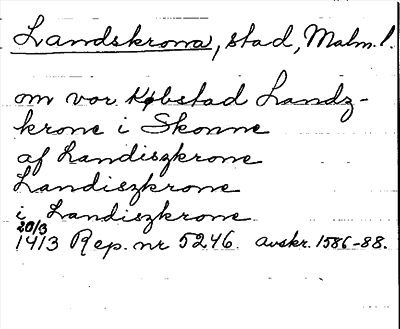 Landskrona, stad, Malm. l.
om vor Købstad Landz-
krone i Skonne
af Landiszkrone
Landiszkrone
i Landiszkrone
20/3
1413 Rep. nr 5246. avskr. 1586-88.